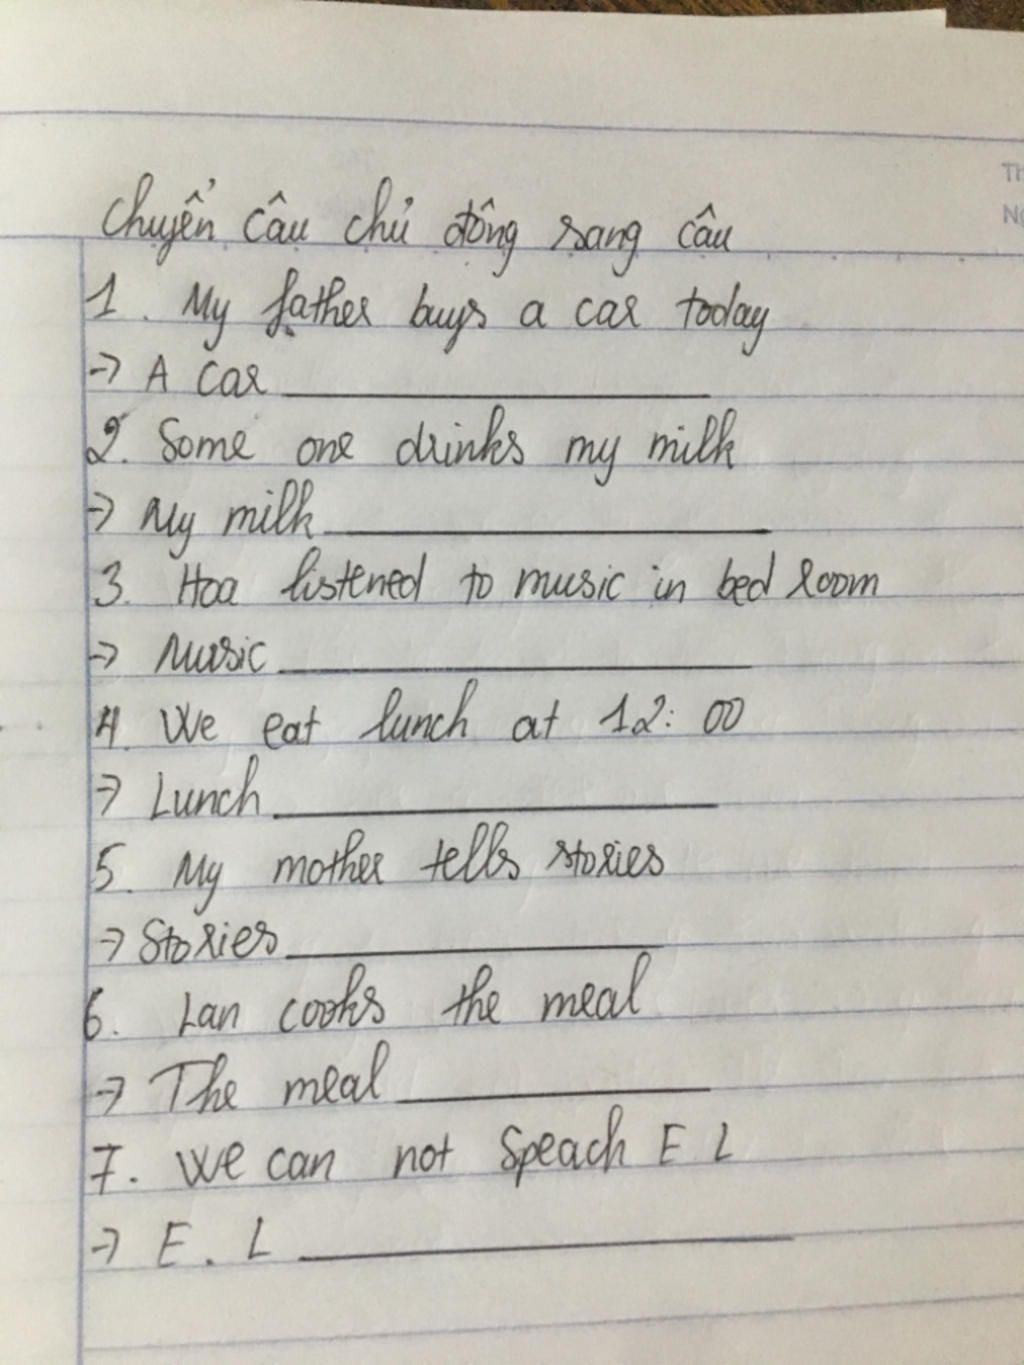 chuyển câu chủ động sang câu
1. My father buys a car today
→ A car
2. Some one drinks my milk
→ My milk
3. Hoa listened to music in bed room
→ Music
4. We eat lunch at 12:00
→ Lunch
5. My mother tells stories
→ Stories
6. Lan cooks the meal
→ The meal
7. We can not Speach E L
→ E. L